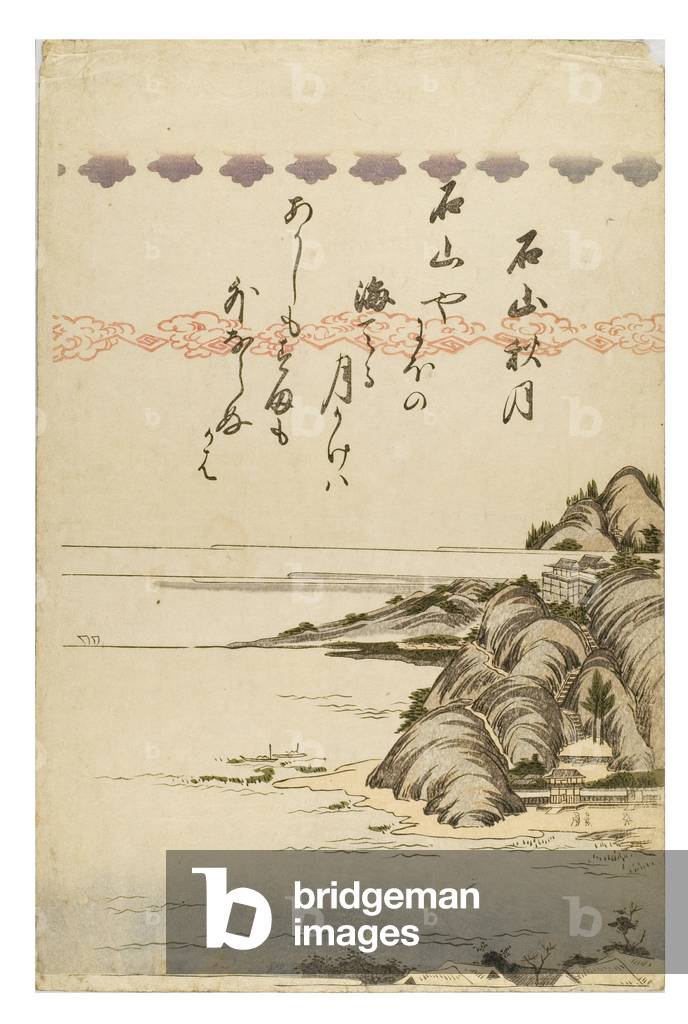 石山秋月
石山や
にほの
海てる
月かけハ
あかしもすまも
外ならぬ
かは
bridgeman
images